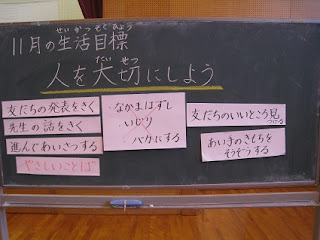 せいかつもくひょう
11月の生活目標
たい せつ
人を大切にしよう
友だちの発表をきく
先生の話をきく
進んであいさつする
やさしいことば
なかまはずし
いじり
バカにする
友だちのいいところ見
つける
あいてのきもちを
そうぞうする